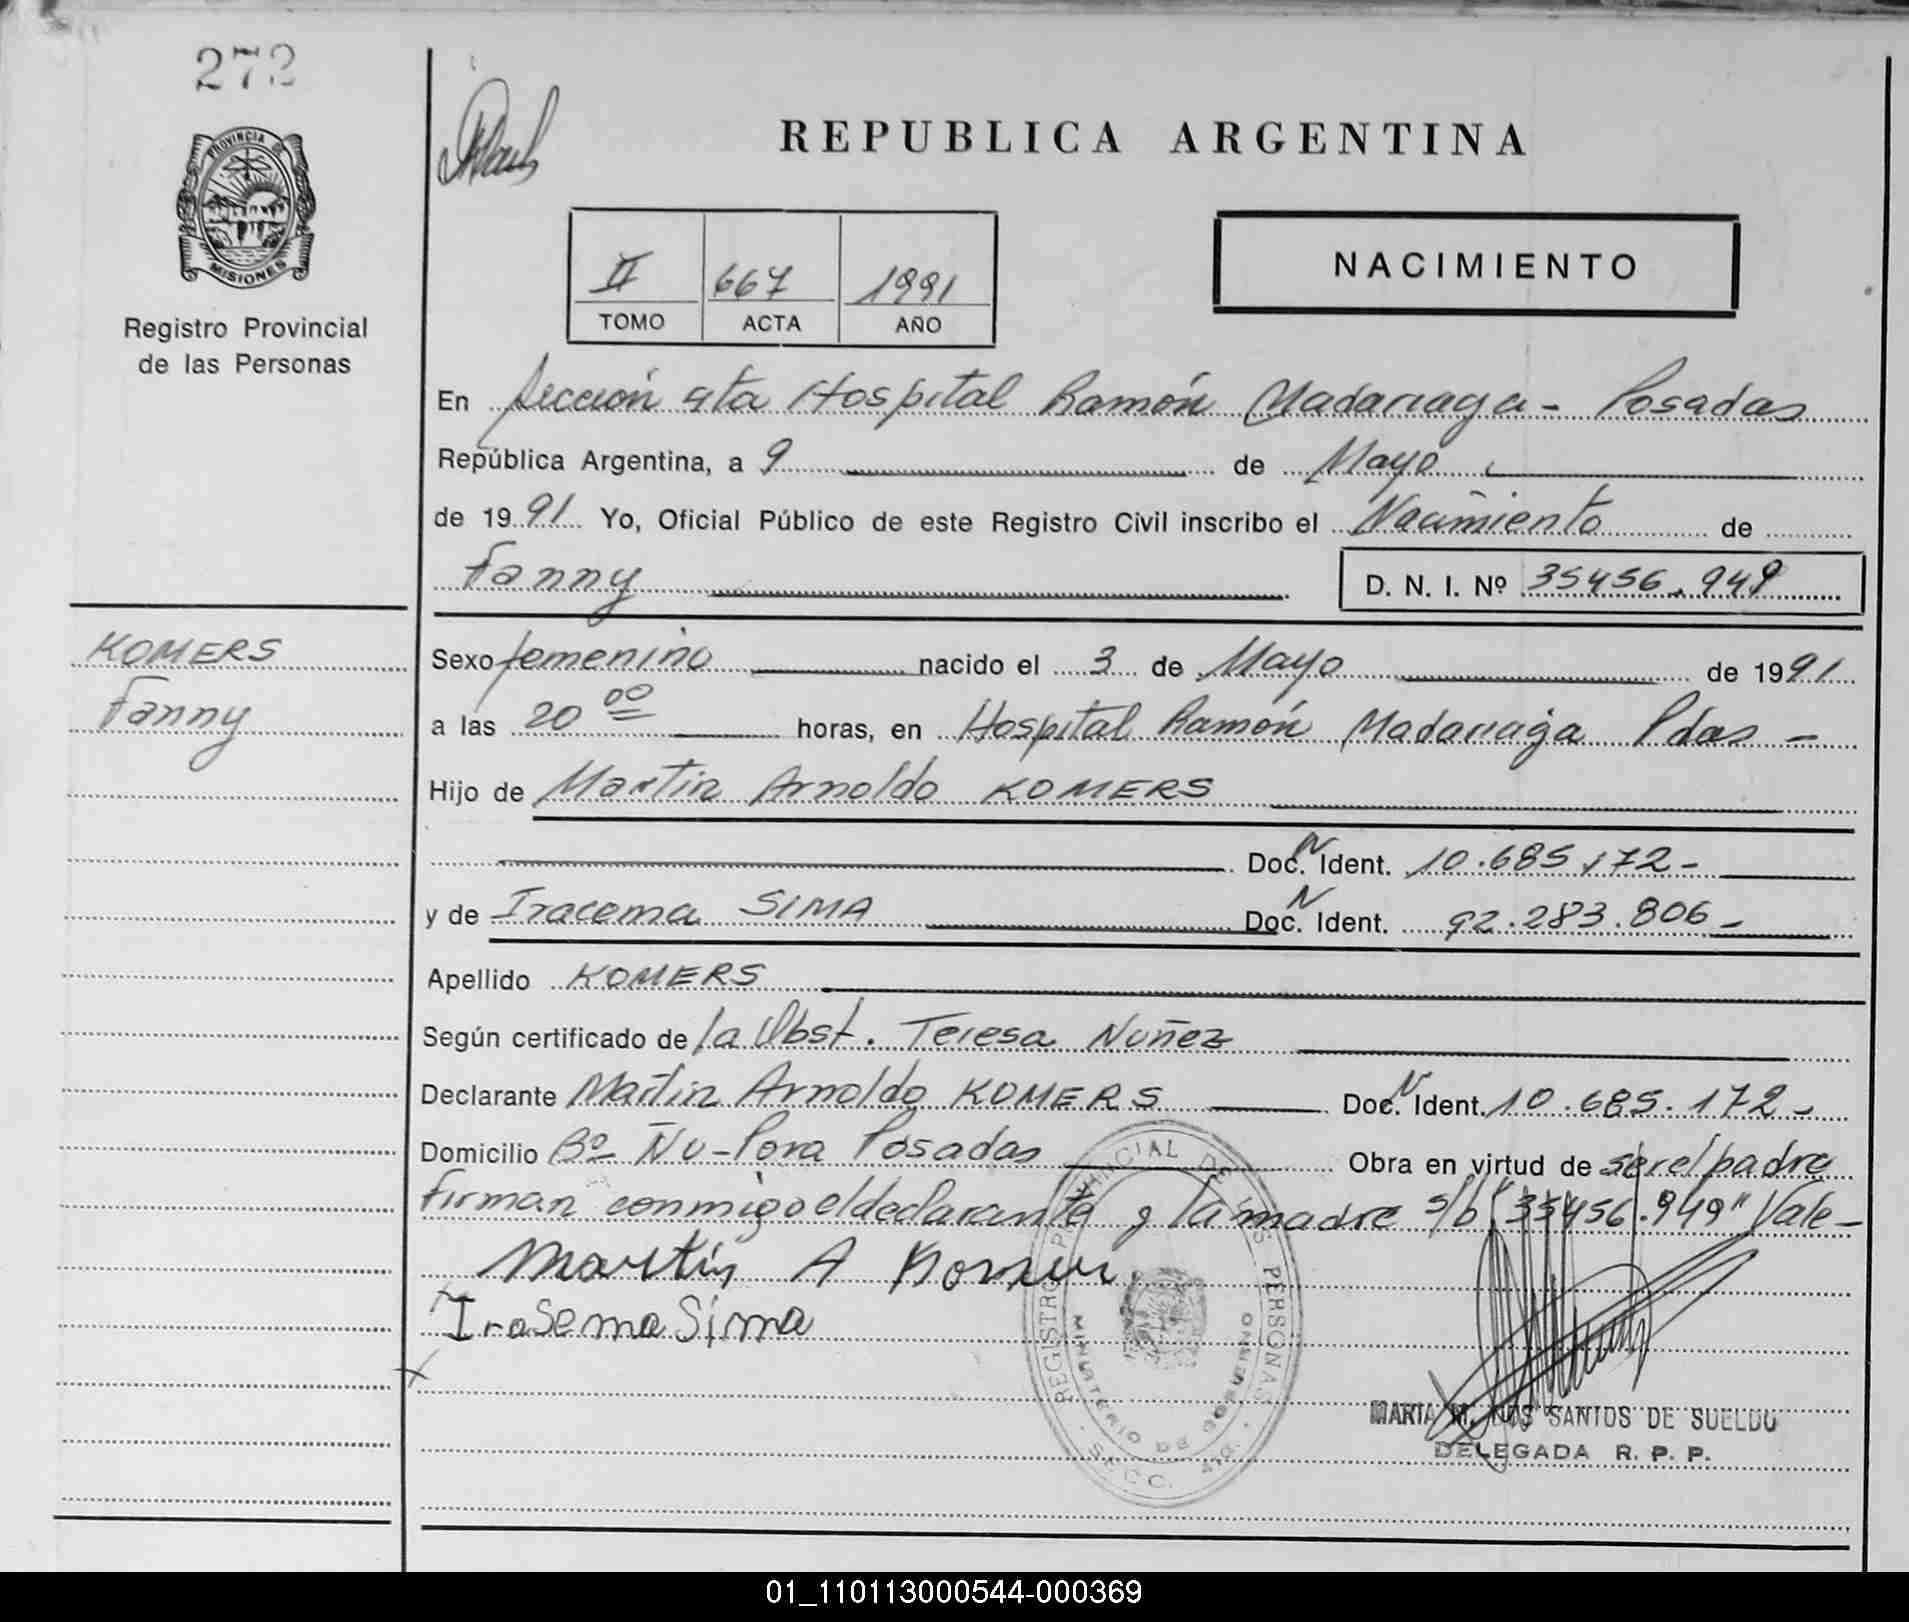 272
PROVINCIA DE
MISIONES
Registro Provincial
de las Personas
REPUBLICA ARGENTINA
II 667 1991
TOMO ACTA AÑO
NACIMIENTO
En Sección 4ta Hospital Ramón Madariaga - Posadas
República Argentina, a 9 de Mayo
de 1991 Yo, Oficial Público de este Registro Civil inscribo el Nacimiento de
Fanny D. N. I. Nº 35456.949
KOMERS
Fanny
Sexo femenino nacido el 3 de Mayo de 1991
a las 20 00 horas, en Hospital Ramón Madariaga Pdas -
Hijo de Martin Arnoldo KOMERS
Doc. N Ident. 10.685.172 -
y de Iracema SIMA Doc. N Ident. 92.283.806 -
Apellido KOMERS
Según certificado de la Obst. Teresa Nuñez
Declarante Martin Arnoldo KOMERS Doc. N Ident. 10.685.172 -
Domicilio Bº Ñu-Pora Posadas Obra en virtud de ser el padre
firman conmigo el declarante y la madre s/b "35456.949" Vale -
Martin A Komers
IraSema Sima
REGISTRO PROVINCIAL DE LAS PERSONAS
MINISTERIO DE GOBIERNO
SECC. 4ta.
MARIA M. DOS SANTOS DE SUELDO
DELEGADA R. P. P.
01_110113000544-000369